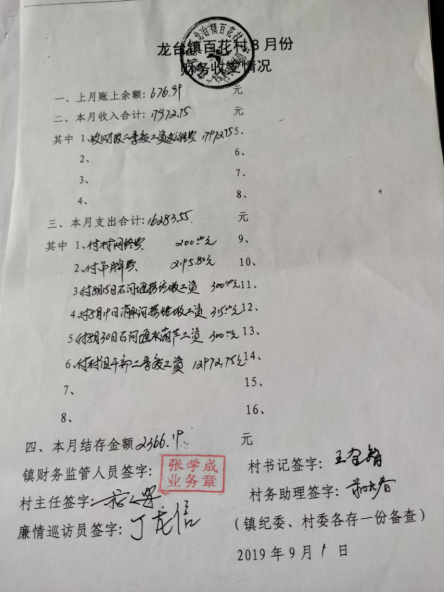 龙台镇百花村8月份
财务收支情况
一、上月账上余额:676.99 元
二、本月收入合计:17972.75 元
其中 1、收财政二季度工资 17972.75 5、
2、 6、
3、 7、
4、 8、
三、本月支出合计:16283.55 元
其中 1、付村网络费 200.00元 9、
2、付吊牌费 2195.80元 10、
3付8月15日石河 工资 300.00元 11、
4付8月19日 工资 315.00元 12、
5付8月30日石河 工资 300.00元 13、
6、付村组干部二季度工资 12972.75元 14、
7、 15、
8、 16、
四、本月结存金额2366.19 元
镇财务监管人员签字: 张学成
业务章
村书记签字:
村主任签字:
村务助理签字:
廉情巡访员签字:丁龙信
(镇纪委、村委各存一份备查)
2019年9月1日